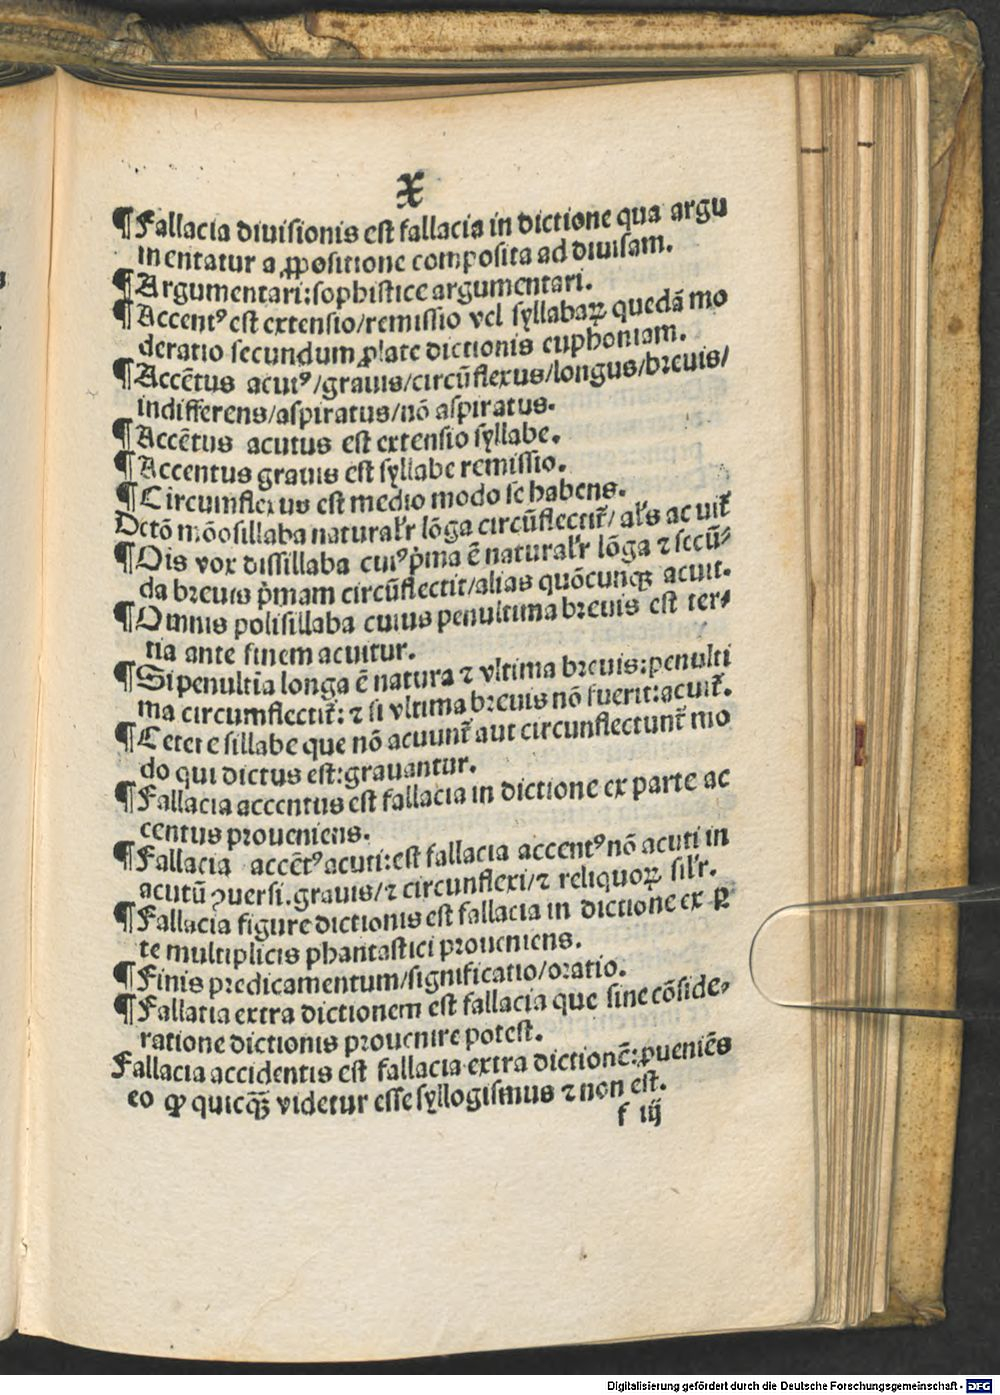 X
¶Fallacia diuisionis est fallacia in dictione qua argu
mentatur a ꝓpositione composita ad diuisam.
¶Argumentari:sophistice argumentari.
¶Accentꝰ est extensio/remissio vel syllabaꝝ quedā mo
deratio secundum ꝓlate dictionis euphoniam.
¶Accētus acutꝰ/grauis/circūflexus/longus/breuis/
indifferens/aspiratus/nō aspiratus.
¶Accētus acutus est extensio syllabe.
¶Accentus grauis est syllabe remissio.
¶Circumflexus est medio modo se habens.
Dctō mōosillaba natural'r lōga circūflectit̃/ al's acuit̃
¶Ois vox dissillaba cuiꝰ p̄ma ē natural'r lōga ⁊ secū-
da breuis p̄mam circūflectit/alias quōcunqꝫ acuit.
¶Omnis polisillaba cuius penultima breuis est ter-
tia ante finem acuitur.
¶Si penultīa longa ē natura ⁊ vltima breuis:penulti
ma circumflectit̃: ⁊ si vltima breuis nō fuerit:acuit̃.
¶Cetere sillabe que nō acuunt̃ aut circunflectunt̃ mo
do qui dictus est:grauantur.
¶Fallacia accentus est fallacia in dictione ex parte ac
centus proueniens.
¶Fallacia accētꝰ acuti:est fallacia accentꝰ nō acuti in
acutū ꝯuersi.grauis/⁊ circunflexi/⁊ reliquoꝝ sil'r.
¶Fallacia figure dictionis est fallacia in dictione ex ꝑ
te multiplicis phantastici proueniens.
¶Finis predicamentum/significatio/oratio.
¶Fallatia extra dictionem est fallacia que sine cōside-
ratione dictionis prouenire potest.
Fallacia accidentis est fallacia extra dictionē:ꝓueniēs
eo ꝙ quicq̄ꝫ videtur esse syllogismus ⁊ non est.
f iij
Digitalisierung gefördert durch die Deutsche Forschungsgemeinschaft - DFG